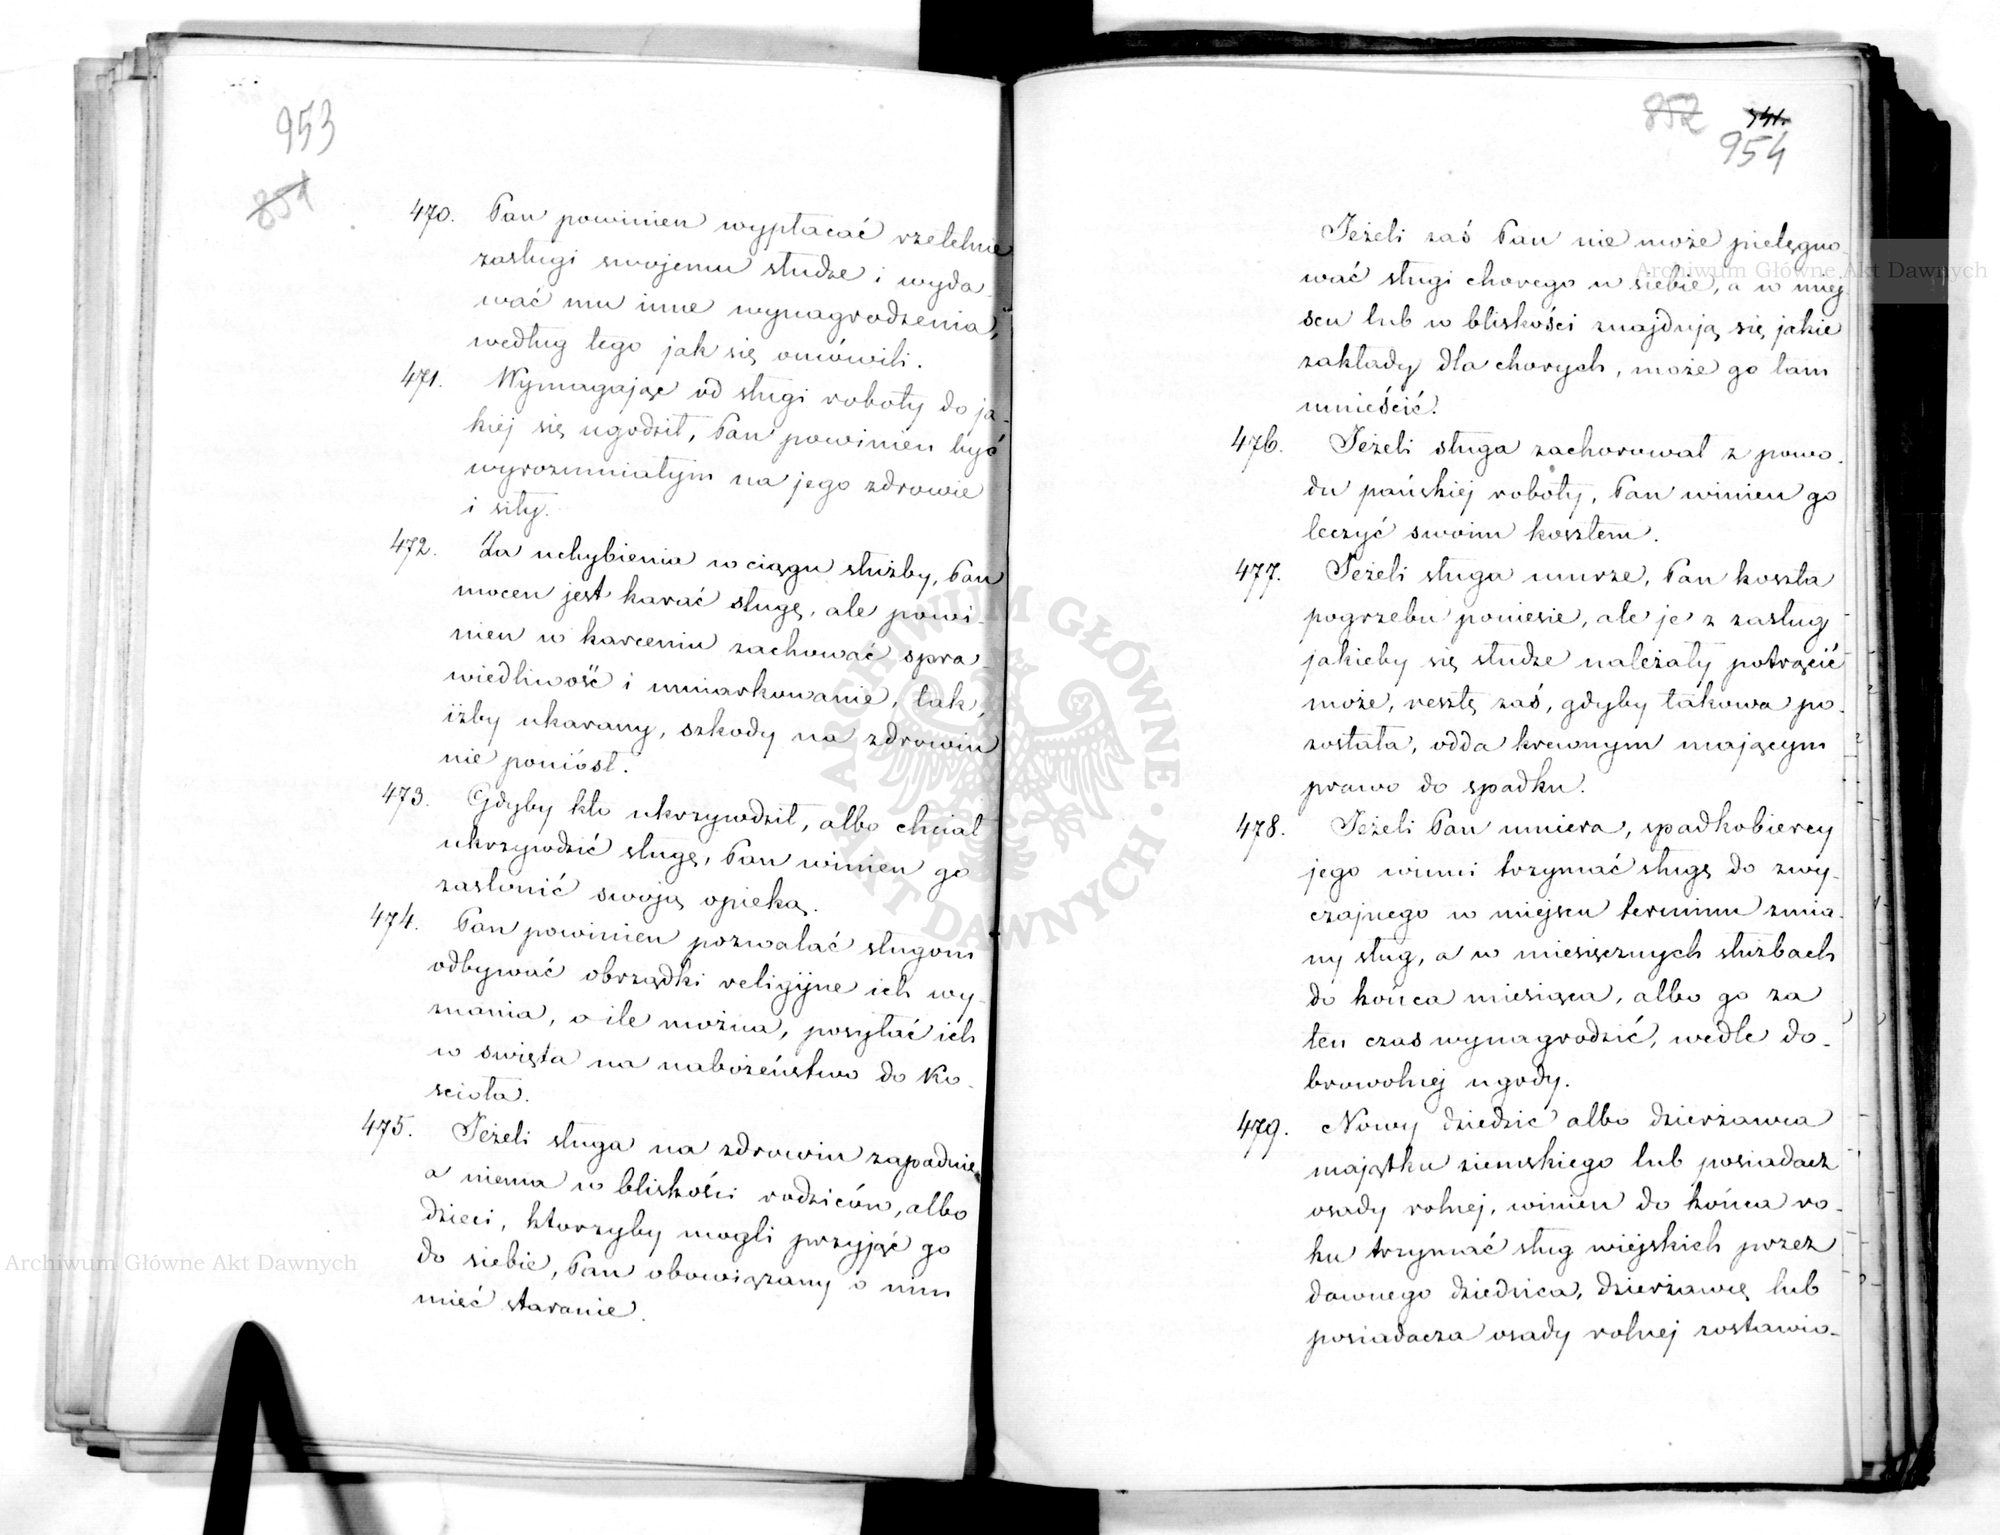 953
851
470. Pan powinien wypłacać rzetelnie
zasługi swojemu słudze i wyda-
wać mu inne wynagrodzenia,
według tego jak się omówili.
471. Wymagając od sługi roboty do ja-
kiej się ugodził, Pan powinien być
wyrozumiałym na jego zdrowie
i siły.
472. Za uchybienia w ciągu służby, Pan
mocen jest karać sługę, ale powi-
nien w karceniu zachować spra-
wiedliwość i umiarkowanie, tak,
iżby ukarany, szkody na zdrowiu
nie poniósł.
473. Gdyby kto ukrzywdził, albo chciał
ukrzywdzić sługę, Pan winien go
zasłonić swoją opieką.
474. Pan powinien pozwalać sługom
odbywać obrządki religijne ich wy-
znania, o ile można, posyłać ich
w święta na nabożeństwo do Ko-
ścioła.
475. Jeżeli sługa na zdrowiu zapadnie
a niema w bliskości rodziców, albo
dzieci, ktorzyby mogli przyjąć go
do siebie, Pan obowiązany o nim
mieć staranie.
852
954
Jeżeli zaś Pan nie może pielęgno-
wać sługi chorego u siebie, a w miej-
scu lub w bliskości znajdują się jakie
zakłady dla chorych, może go tam
umieścić.
476. Jeżeli sługa zachorował z powo-
du pańskiej roboty, Pan winien go
leczyć swoim kosztem.
477. Jeżeli sługa umrze, Pan koszta
pogrzebu poniesie, ale je z zasług
jakieby się słudze należały potrącić
może, resztę zaś, gdyby takowa po-
została, odda krewnym mającym
prawo do spadku.
478. Jeżeli Pan umiera, spadkobiercy
jego winni trzymać sługę do zwy-
czajnego w miejscu terminu zmia-
ny sług, a w miesięcznych służbach
do końca miesiąca, albo go za
ten czas wynagrodzić, wedle do-
browolnej ugody.
479. Nowy dziedzic albo dzierżawca
majątku ziemskiego lub posiadacz
osady rolnej, winien do końca ro-
ku trzymać sług wiejskich przez
dawnego dziedzica, dzierżawcę lub
posiadacza osady rolnej zostawio-
Archiwum Główne Akt Dawnych
Archiwum Główne Akt Dawnych
ARCHIWUM GŁÓWNE · AKT DAWNYCH ·